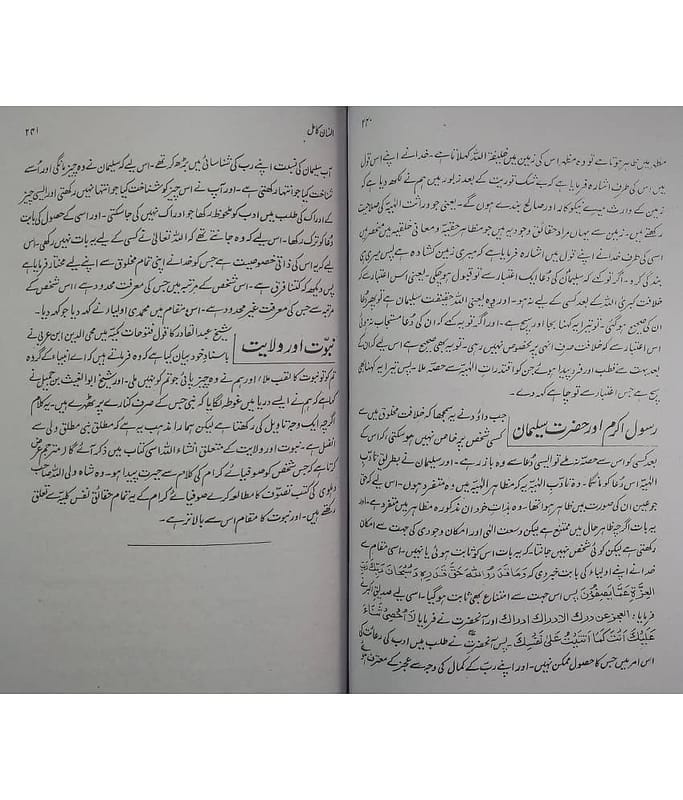 ۲۴۰
مظہر میں ظاہر ہوتا ہے تو وہ مظہر اس کی زمین میں خلیفۃ اللہ کہلاتا ہے۔ خدا نے اپنے اس قول
میں اس کی طرف اشارہ فرمایا ہے کہ بے شک توریت کے بعد زبور میں ہم نے لکھ دیا ہے کہ
زمین کے وارث میرے نیکو کار اور صالح بندے ہوں گے۔ یعنی جو وراثت الٰہیہ کی صلاحیت
رکھتے ہیں۔ زمین سے یہاں مراد حقائق وجودیہ ہیں جو مظاہر حقیہ و معانی خلقیہ میں منحصر ہیں
اسی کی طرف خدا نے اپنے قول میں اشارہ فرمایا ہے کہ میری زمین کشادہ ہے پس میری ہی
بندگی کرو۔ اگر تو کہے کہ سلیمان کی دعا ایک اعتبار سے تو قبول ہوچکی۔ یعنی اس اعتبار سے کہ
خلافت کبریٰ اللہ کے بعد کسی کے لیے نہ ہو۔ اور وہ یعنی اللہ حقیقت سلیمان ہے تو پھر دعا
ان کی صحیح ہوگئی۔ تو تیرا یہ کہنا بجا اور صحیح ہے۔ اور اگر تو یہ کہے کہ ان کی دعا مستجاب نہ ہوئی
اس اعتبار سے کہ خلافت صرف انہی پر مخصوص نہیں رہی۔ تو یہ بھی صحیح ہے اس لیے کہ ان کے
بعد بہت سے قطب اور فرد پیدا ہوئے جن کو اقتدارات الٰہیہ سے حصہ ملا۔ پس تیرا یہ کہنا بھی
صحیح ہے جس اعتبار سے تو چاہے کہہ دے۔
رسول اکرم اور حضرت سلیمان
جب داؤد نے یہ سمجھا کہ خلافت مخلوق میں سے
کسی شخص پر خاص نہیں ہوسکتی اور اس کے
بعد کسی کو اس سے حصہ نہ ملے تو ایسی دعا سے وہ باز رہے۔ اور سلیمان نے بطریق تأدب
الٰہیہ اس دعا کو مانگا۔
جو عین ان کی صورت میں ظاہر ہوا تھا۔ وہ بذات خود ان مذکورہ مظاہر میں متفرد ہے۔
یہ بات اگرچہ ظاہر حال میں ممتنع ہے لیکن وسعت الٰہی اور امکان وجودی کی جہت سے امکان
رکھتی ہے لیکن کوئی شخص نہیں جانتا کہ یہ بات اس کو ثابت ہوئی یا نہیں۔ اسی مقام سے
خدا نے اپنے اولیاء کی بابت خبر دی کہ وَمَا قَدَرُوا اللّٰهَ حَقَّ قَدْرِهٖ وَسُبْحَانَ رَبِّكَ رَبِّ
الْعِزَّةِ عَمَّا يَصِفُوْنَ پس اس جہت سے امتناع بھی ثابت ہوگیا۔ اسی لیے صدیق اکبر نے
فرمایا: العجز عن درك الادراك ادراك اور آنحضرت نے فرمایا لَا أُحْصِيْ ثَنَاءً
عَلَيْكَ أَنْتَ كَمَا أَثْنَيْتَ عَلٰى نَفْسِكَ۔ پس آنحضرت نے طلب میں ادب کی رعایت کی
اس امر میں جس کا حصول ممکن نہیں۔ اور اپنے رب کے کمال کی وجہ سے عجز کے معترف ہوئے
۲۴۱
انسان کامل
آپ سلیمان کی نسبت اپنے رب کی شناسائی میں بڑھ کر تھے۔ اس لیے کہ سلیمان نے وہ چیز مانگی اور اسے
شناخت کیا جو انتہا رکھتی ہے۔ اور آپ نے اس چیز کو شناخت کیا جو انتہا نہیں رکھتی اور ایسی چیز
کے ادراک کی طلب میں ادب کو ملحوظ رکھا جو ادراک نہیں کی جاسکتی۔ اور اسی کے حصول کی بابت
دعا کو ترک رکھا۔ اس لیے کہ وہ جانتے تھے کہ اللہ تعالیٰ نے کسی کے لیے یہ بات نہیں رکھی۔ اس
لیے کہ یہ اس کی ذاتی خصوصیت ہے جس کو خدا نے اپنی تمام مخلوق سے اپنے لیے مختار فرمایا ہے
پس دیکھ کہ کتنا فرق ہے۔ اس شخص کے مرتبہ میں جس کی معرفت محدود ہے۔ اس شخص کے
مرتبہ سے جس کی معرفت غیر محدود ہے۔ اس مقام میں محمدی اولیاء نے کہہ دیا جو کہہ دیا۔
نبوت اور ولایت
شیخ عبد القادر کا قول فتوحات مکیہ میں محی الدین ابن عربی نے
باسناد خود بیان کیا ہے کہ وہ فرماتے ہیں کہ اے انبیاء کے گروہ
تم کو تو نبوت کا لقب ملا اور ہم نے وہ چیز پائی جو تم کو نہیں ملی۔ اور شیخ ابو الغیث بن جمیل نے
کہا ہے کہ ہم نے ایسے دریا میں غوطہ لگایا کہ نبی جس کے صرف کنارے پر ٹھہرے ہیں۔ یہ کلام
اگرچہ ایک وجہ تاویل کی رکھتا ہے لیکن ہمارا مذہب یہ ہے کہ مطلق نبی مطلق ولی سے
افضل ہے۔ نبوت اور ولایت کے متعلق انشاء اللہ اسی کتاب میں ذکر آئے گا (مترجم عرض
کرتا ہے کہ جس شخص کو صوفیائے کرام کی کلام سے حیرت پیدا ہو۔ وہ شاہ ولی اللہ صاحب
دہلوی کی کتب تصوف کا مطالعہ کرے صوفیائے کرام کے یہ تمام حقائق نفس کلیہ سے تعلق
رکھتے ہیں۔ اور نبوت کا مقام اس سے بالاتر ہے۔